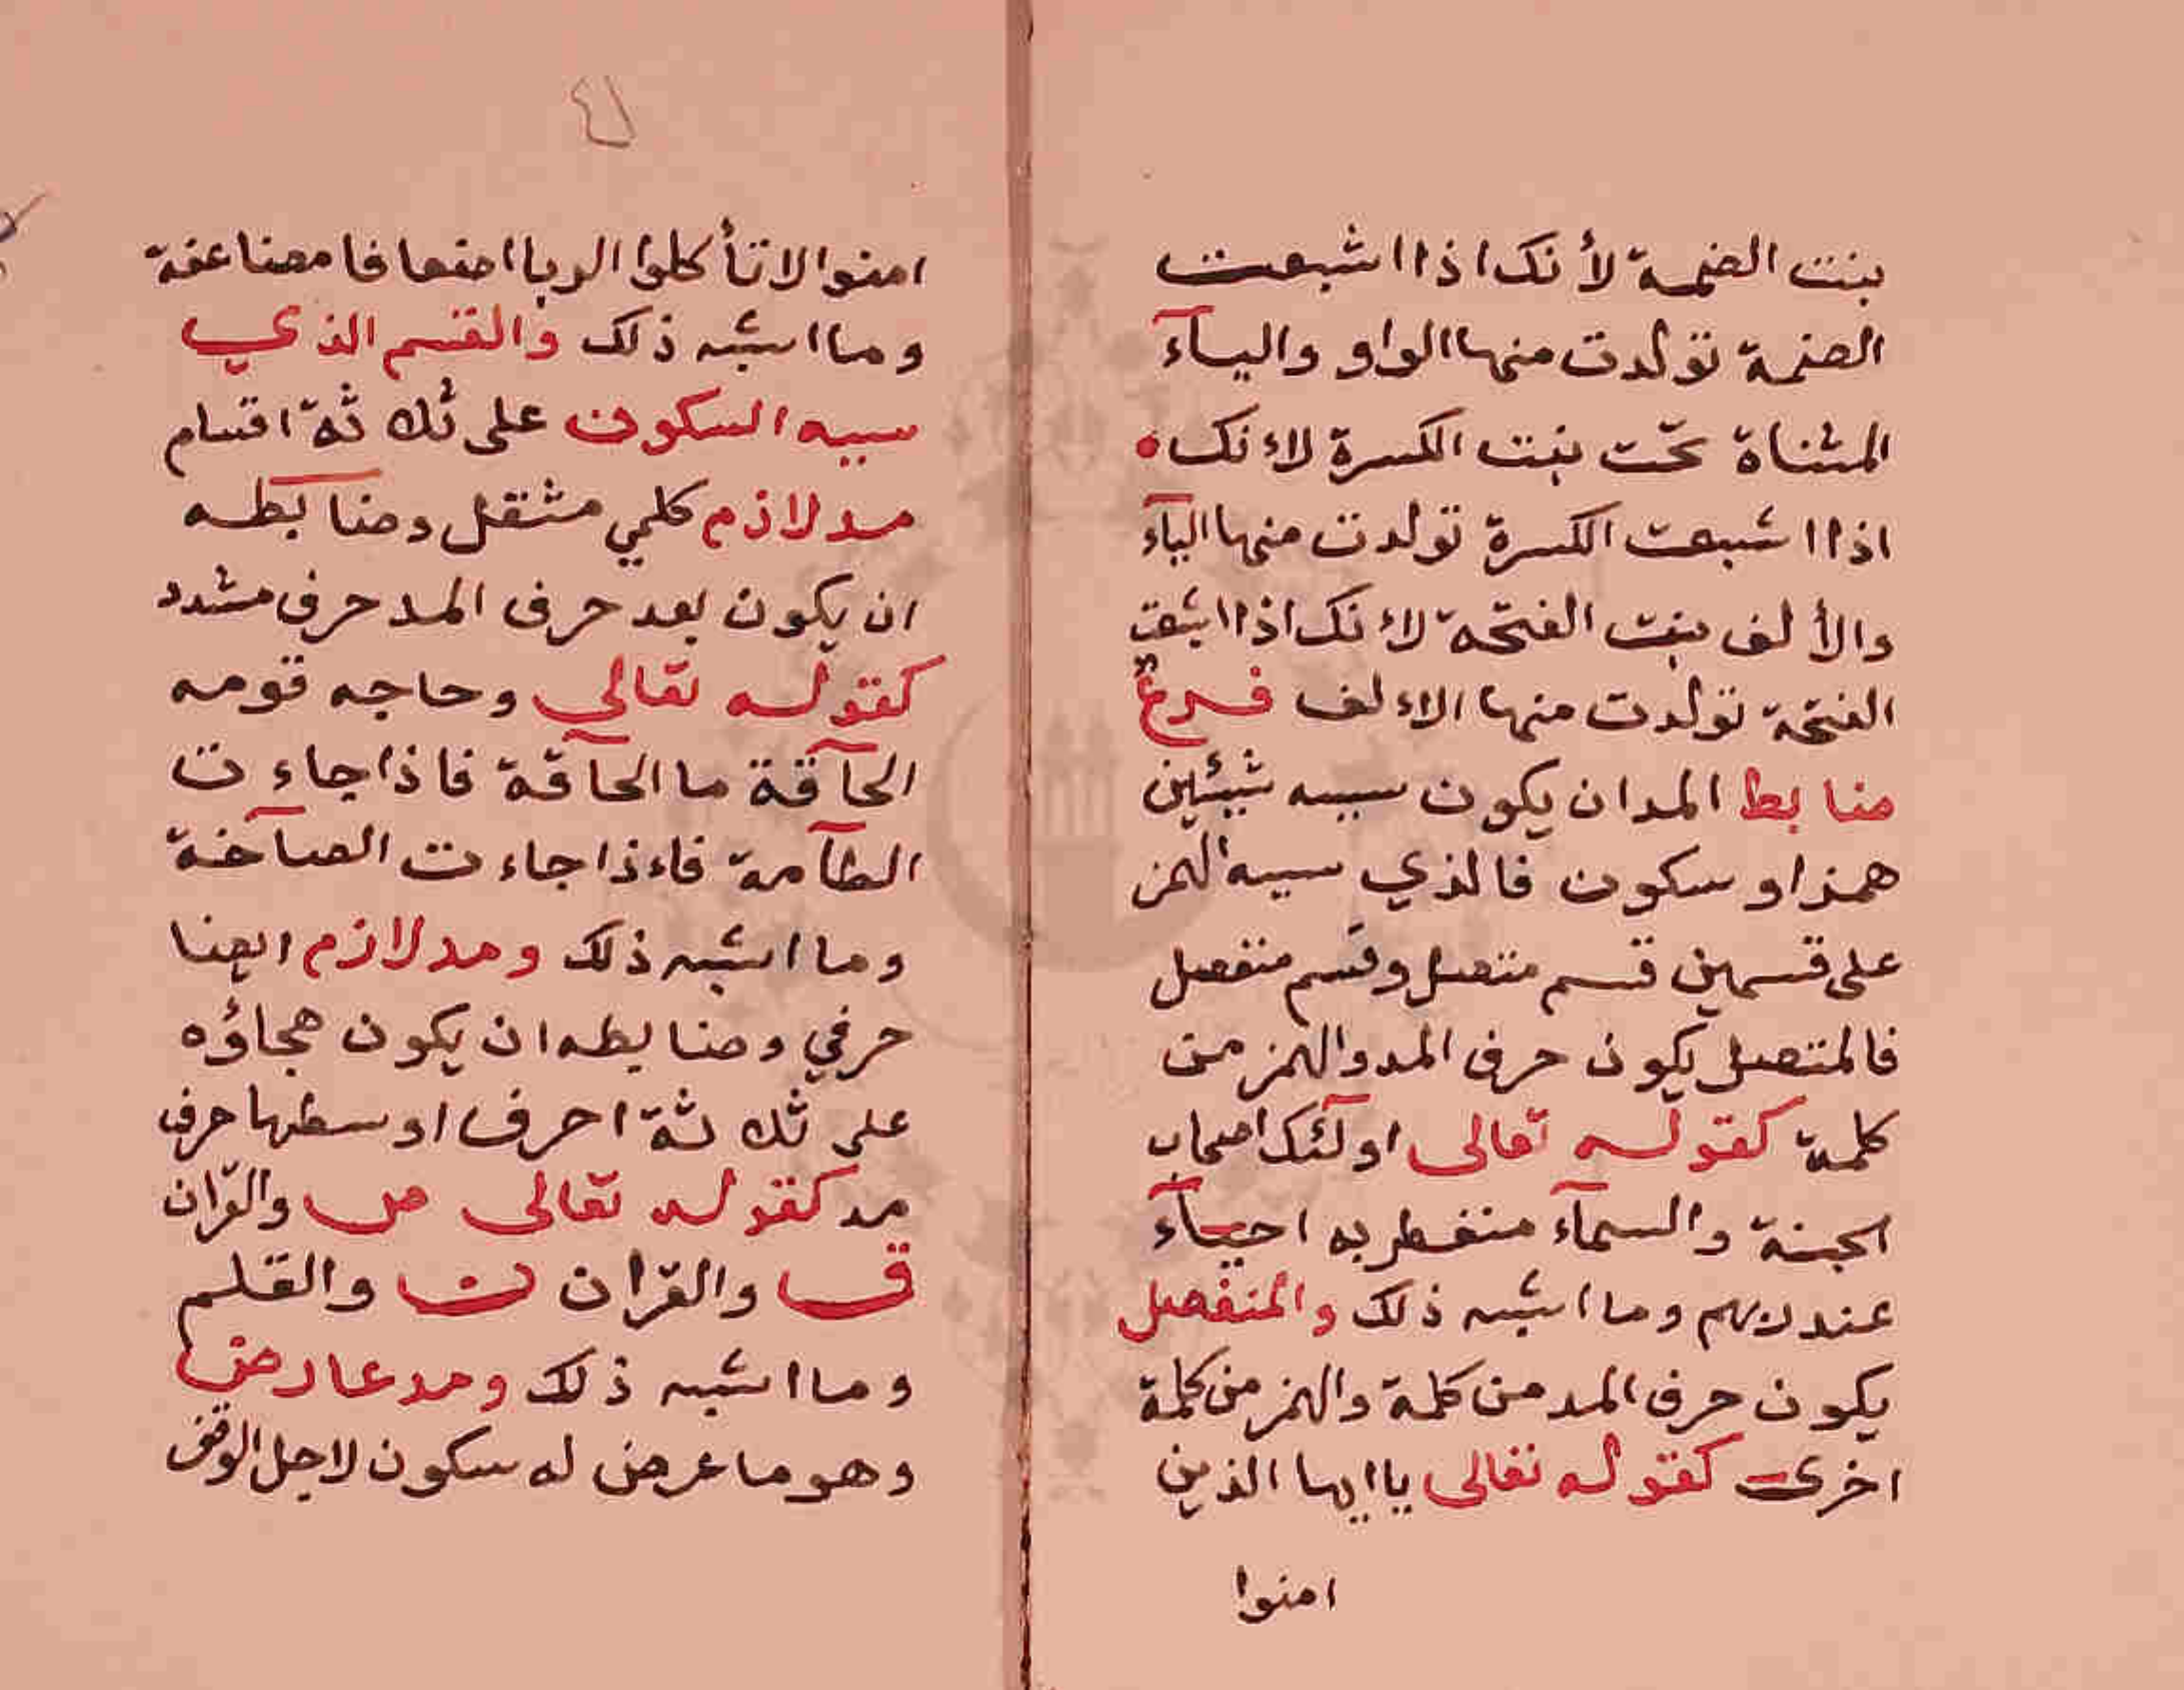 بنت الضمة لأنك اذا اشبعت
الضمة تولدت منها الواو واليآء
المثناة تحت بنت الكسرة لاءنك
اذا اشبعت الكسرة تولدت منها اليآء
والألف بنت الفتحة لاءنك اذا اشبعت
الفتحة تولدت منها الاءلف فرع
ضابط المد ان يكون سببه شيئين
همز او سكون فالذي سببه الهمز
على قسمين قسم متصل وقسم منفصل
فالمتصل يكون حرف المد والهمز من
كلمة كقوله تعالى اولئك اصحاب
الجنة والسمآء منفطر به احيآء
عند ربهم وما اشبه ذلك والمنفصل
يكون حرف المد من كلمة والهمز من كلمة
اخرى كقوله تعالى يا ايها الذين
امنوا
٤١
امنوا لا تأكلوا الربا اضعافا مضاعفة
وما اشبه ذلك والقسم الذي
سببه السكون على ثلاثة اقسام
مد لازم كلمي مثقل وضابطه
ان يكون بعد حرف المد حرف مشدد
كقوله تعالي وحاجه قومه
الحآقة ما الحاقة فاذا جاءت
الطآمة فاءذا جاءت الصآخة
وما اشبه ذلك ومد لازم ايضا
حرفي وضابطه ان يكون هجاؤه
على ثلاثة احرف اوسطها حرف
مد كقوله تعالى ص والقرآن
ق والقرآن ن والقلم
وما اشبه ذلك ومد عارض
وهو ما عرض له سكون لاجل الوقف